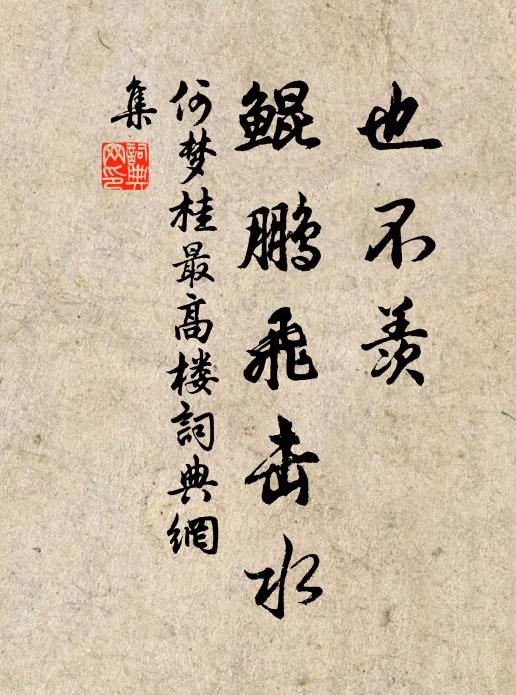 也不羡
鲲鹏飞击水
何梦桂最高楼詞典網
集
詞典网印